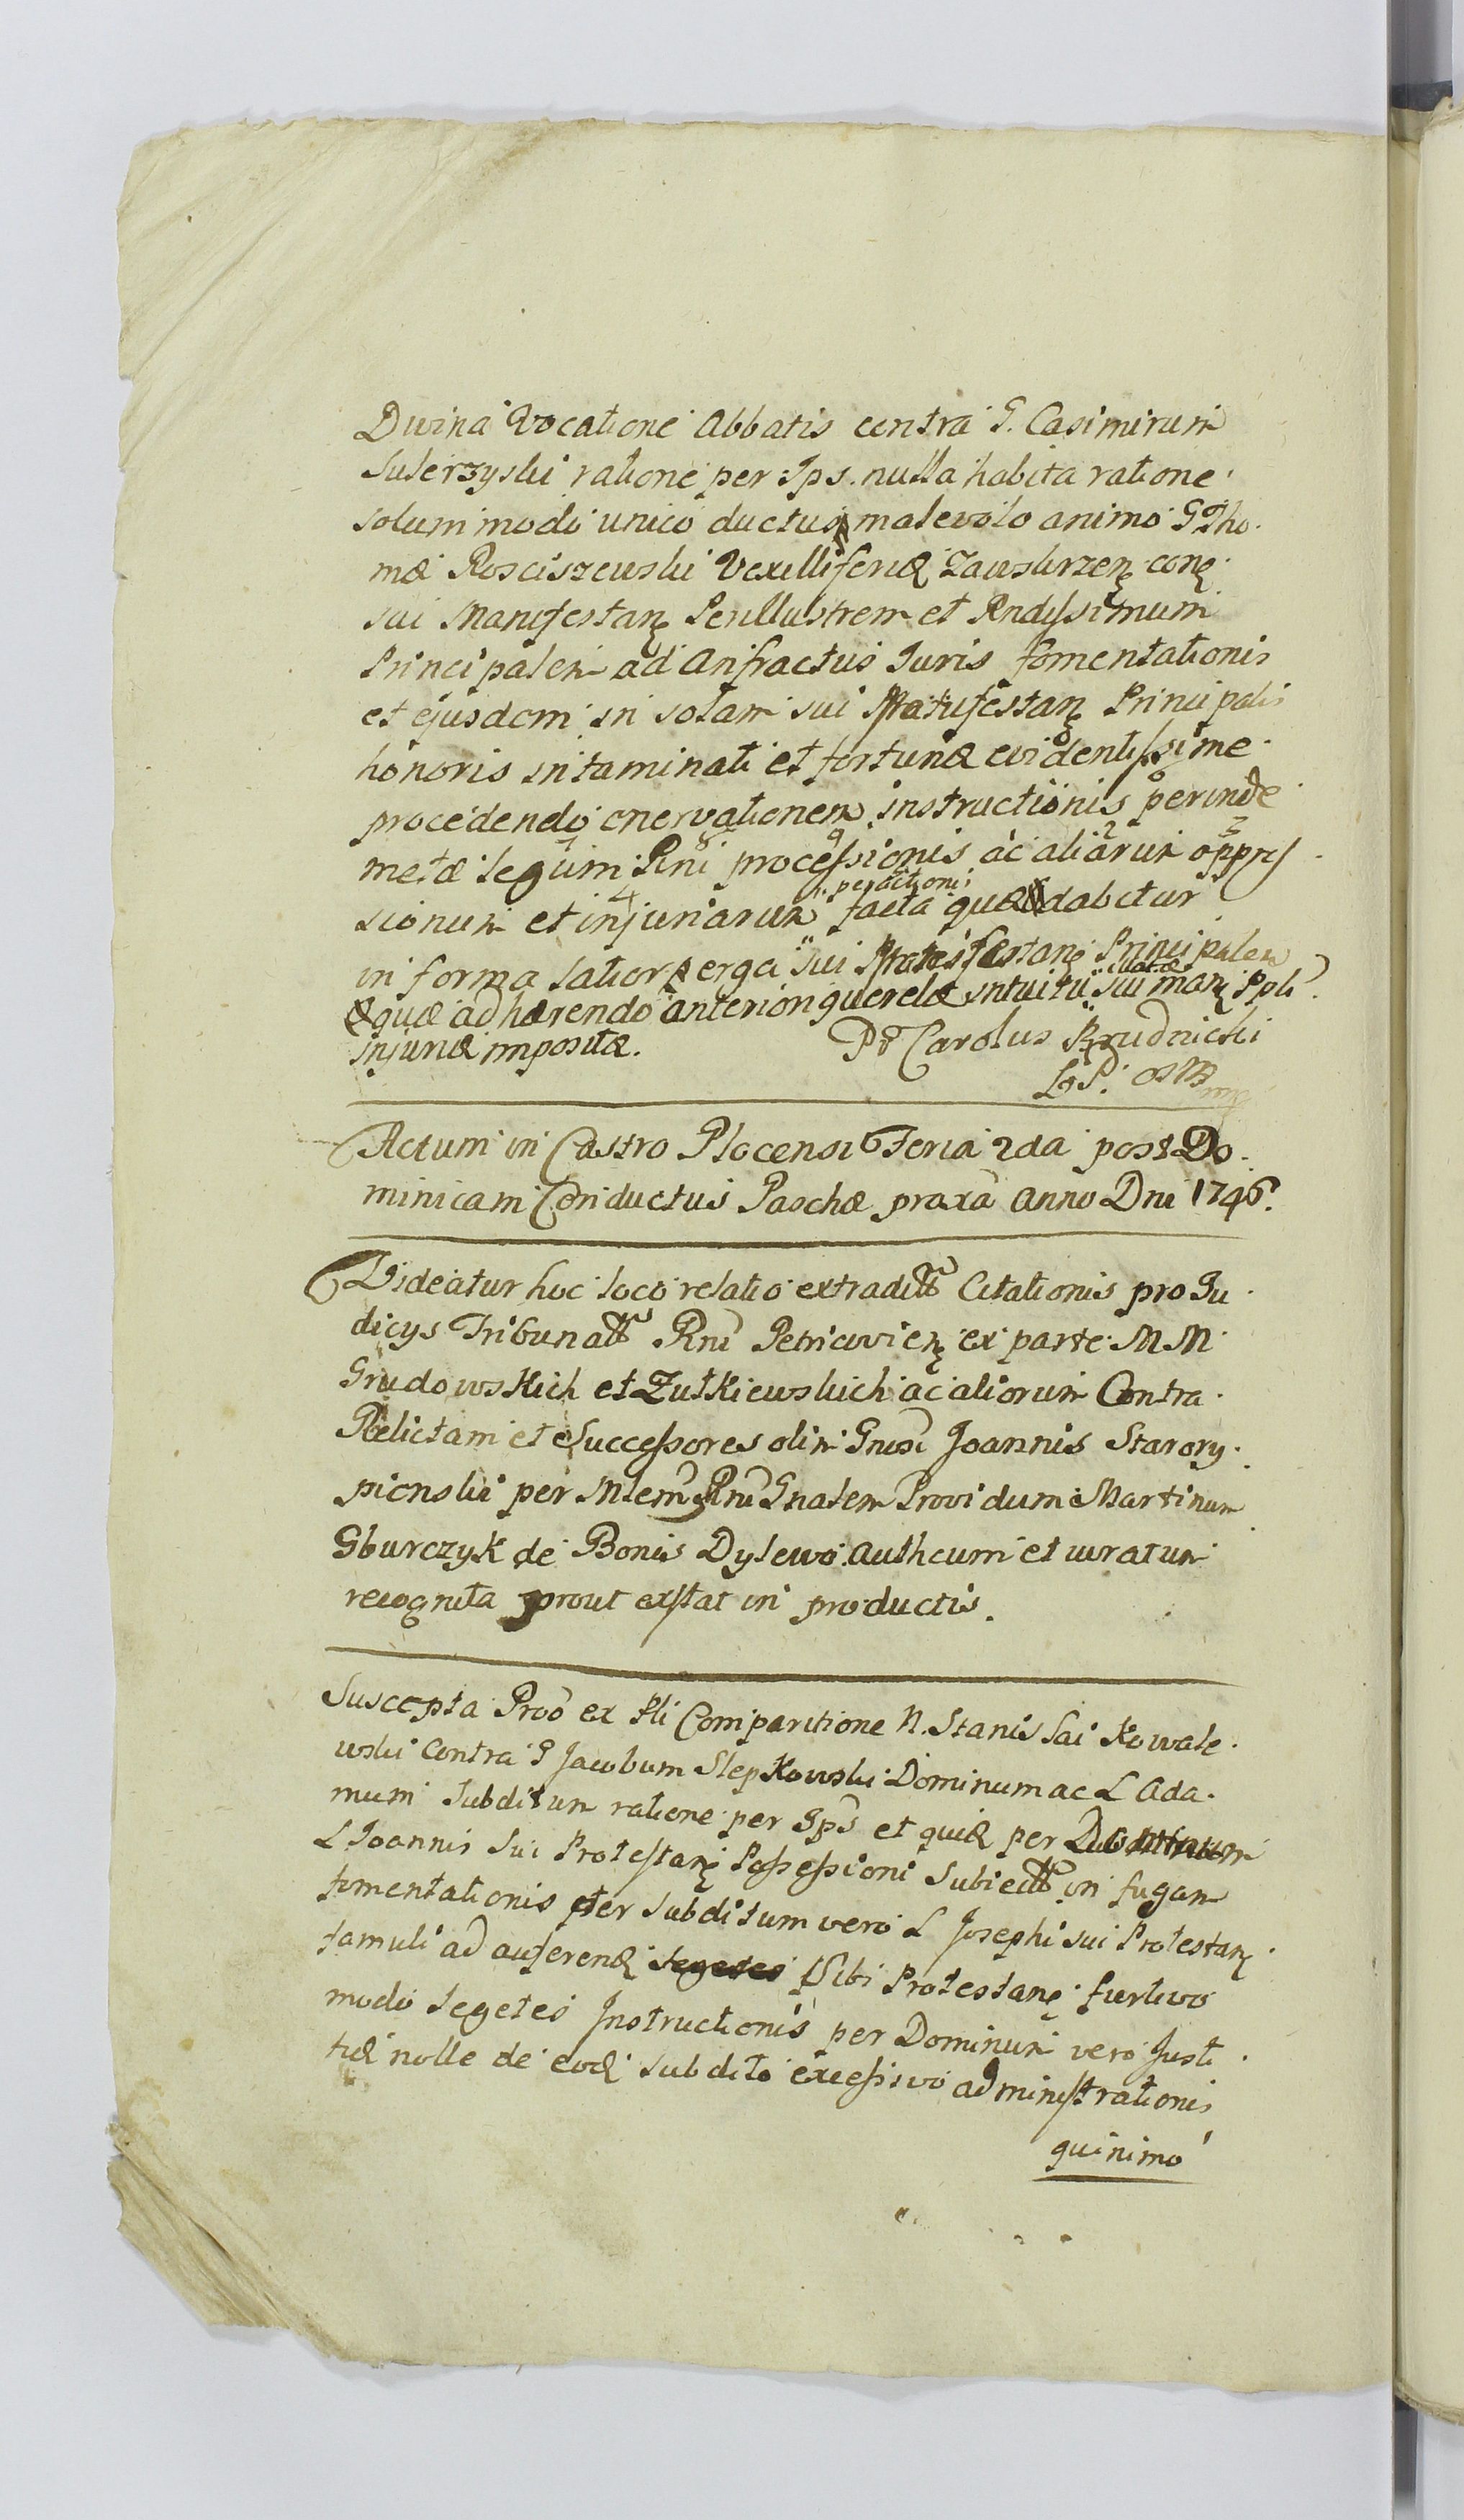 Divina Vocatione Abbatis contra G. Casimirum
Sulerzyski ratione per Ips. nulla habita ratione
solum modo unico ductus malevolo animo G Tho-
mæ Rosciszewski Vexilliferidæ Zawskrzen con
sui Manifestan Perillustrem et Rndissimum
Principalem ad anfractus Juris fomentationis
et ejusdem in solam sui Manifestan Principalis
honoris intaminati et fortunæ evidentissime
procedendo enervationem instructionis perinde
metæ legum Rni processionis ac aliarum oppres
sionum et injuriarum peractioni facta quæ dabitur
in forma latiori erga sui Manifestan Principalem
&quæ adhærendo anteriori querelæ intuitu sui man Ppli
injuriæ impositæ. Pr Carolus Rudnicki
Actum in Castro Plocensi Feria 2da post Do-
minicam Conductus Paschæ proxa Anno Dni 1746.
Videatur hoc loco relatio extradit Citationis pro Ju-
dicys Tribunal Rni Petricovien ex parte M M
Grudowskich et Zutkiewskich ac aliorum Contra
Relictam et Successores olim Gnosi Joannis Starory-
pienski per Mlem Rni Gnalem Providum Martinum
Gburczyk de Bonis Dylewo Authcum et iuratum
recognita prout exstat in productis.
Suscepta Prōo ex Pli Comparitione N. Stanislai Kowale-
wski Contra G Jacobum Slepkowski Dominum ac L Ada-
mum Subditum ratione per Ips et quidē per Dominum
L Joannis sui Protestan Possessioni Subiect in fugam
fomentationis per Subditum vero L Josephi sui Protestan
famuli ad auferend segetes Sibi Protestan furtivo
modo segetes Instructionis per Dominum vero Justi-
tiæ nolle de eod subdito excessivo administrationis
quinimo